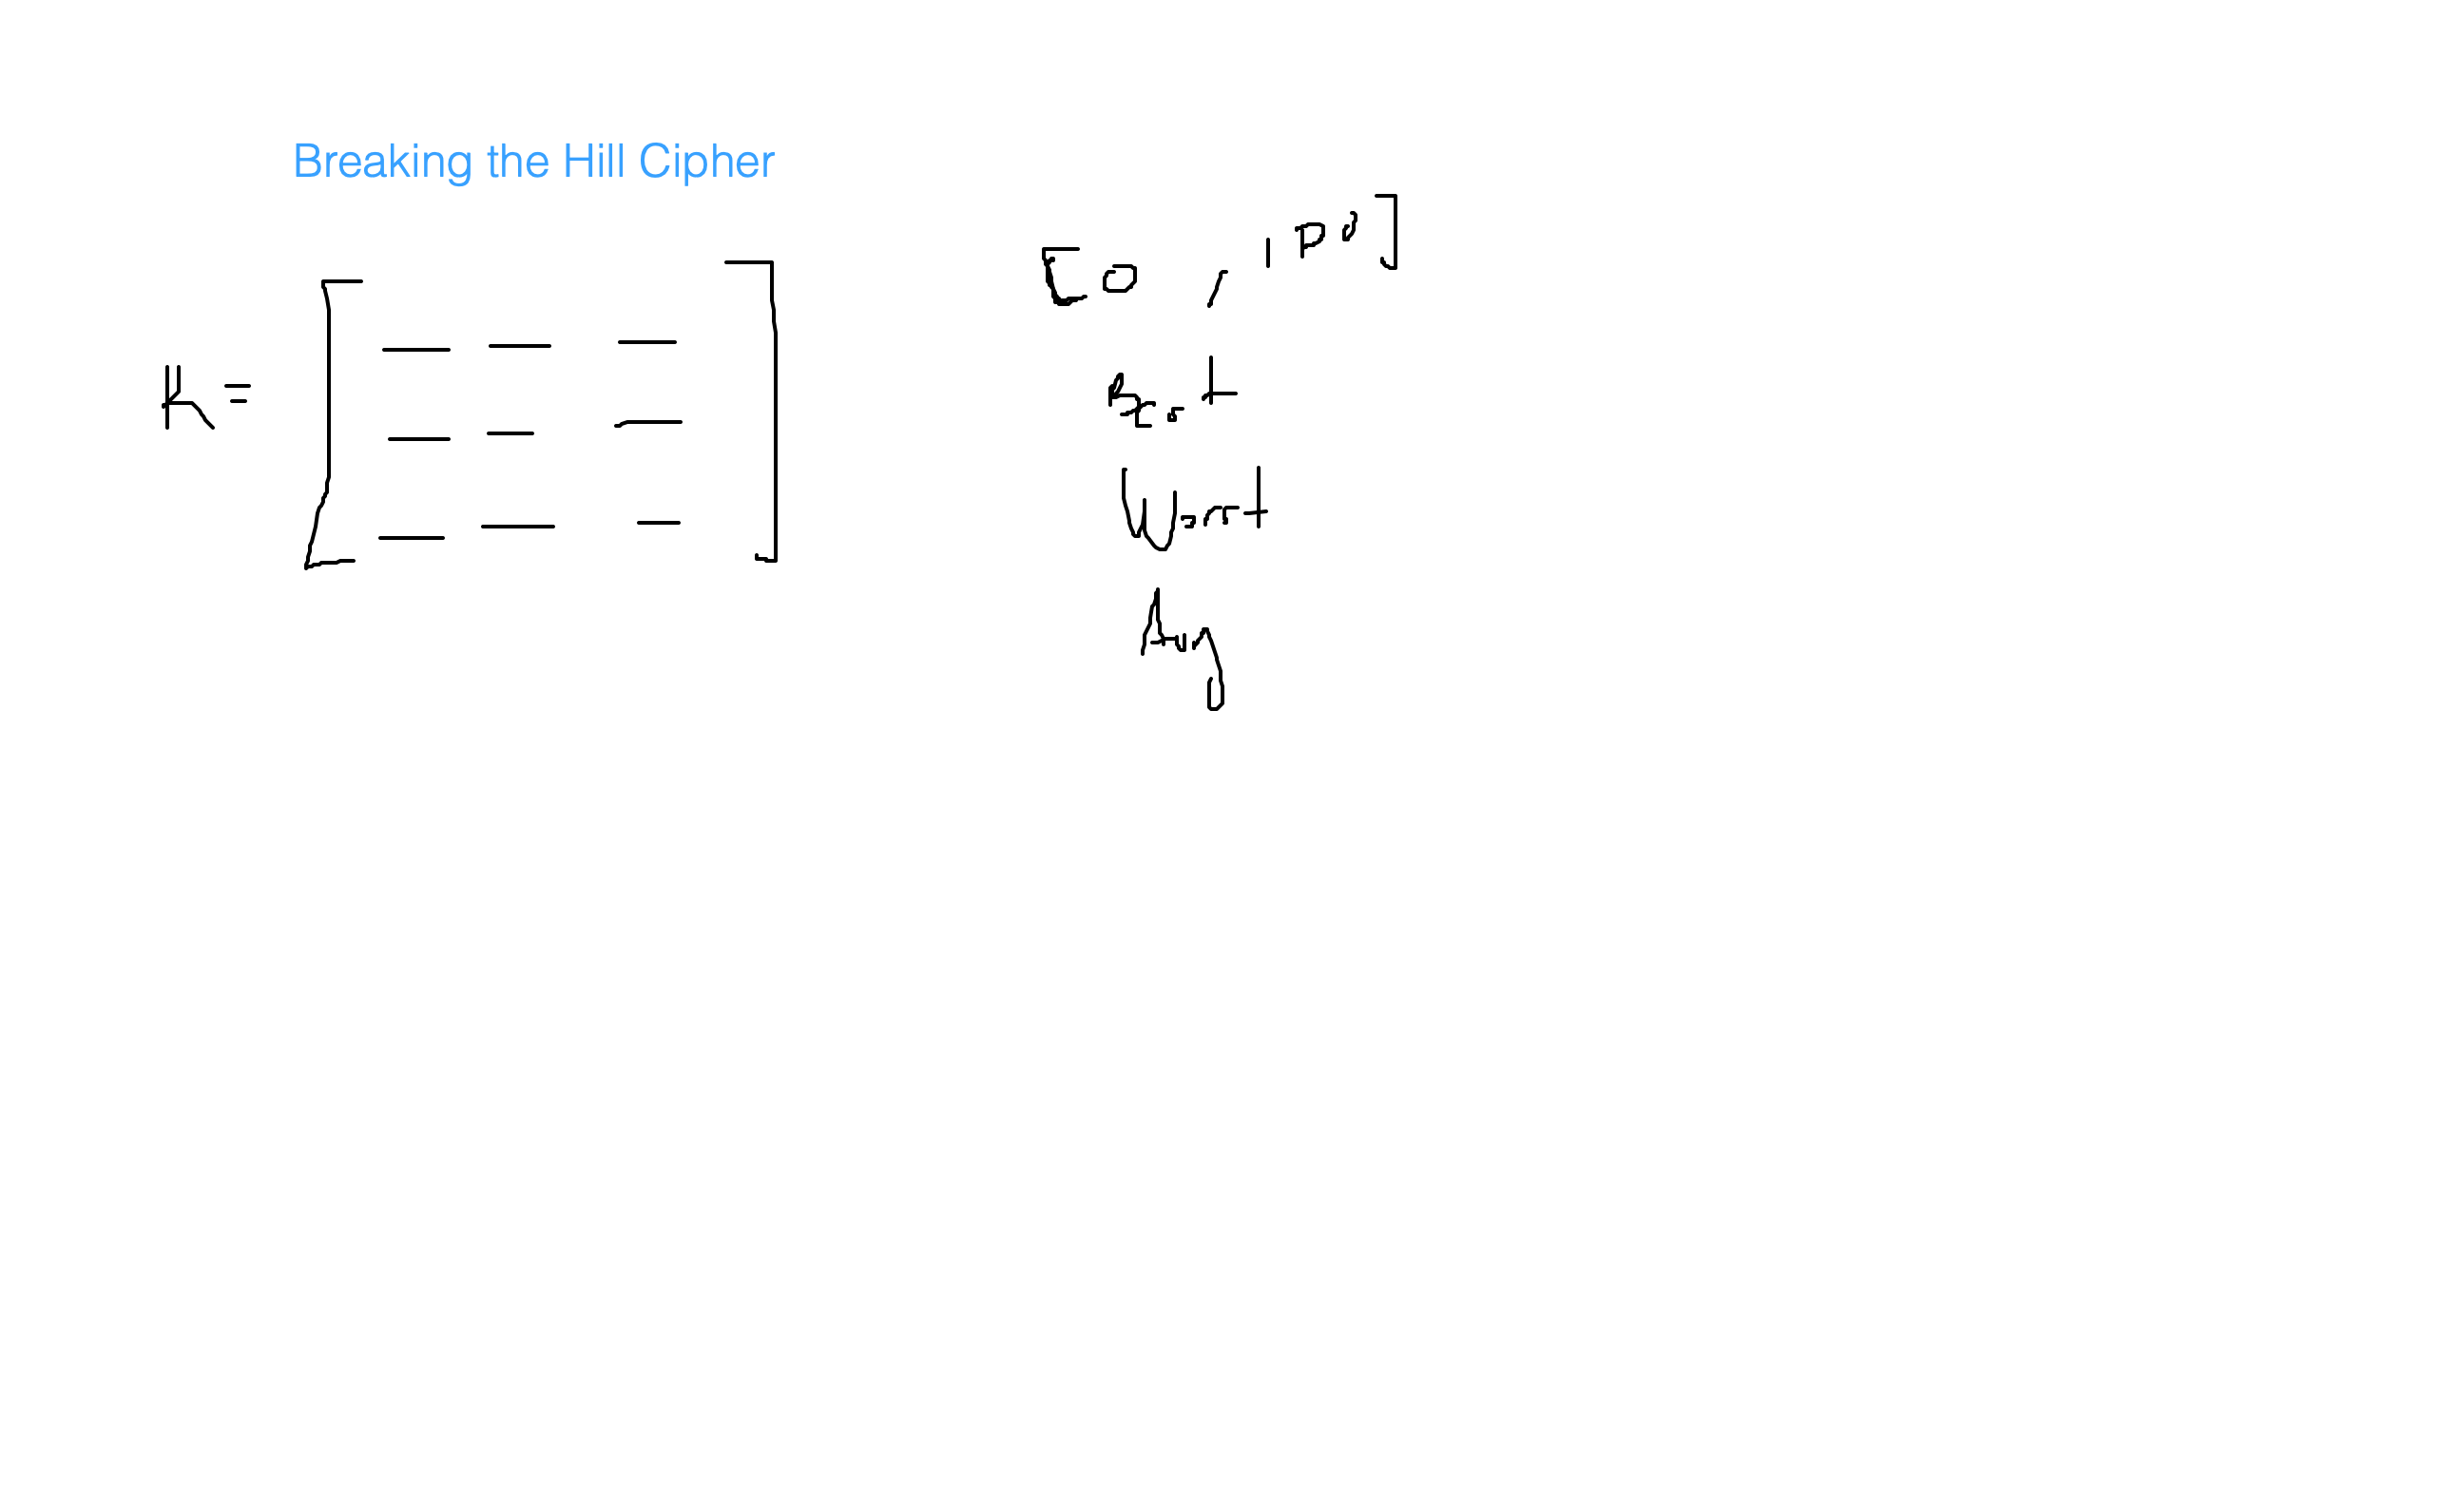 Breaking the Hill Cipher
K =
[0, 100]
Best
Worst
Avg